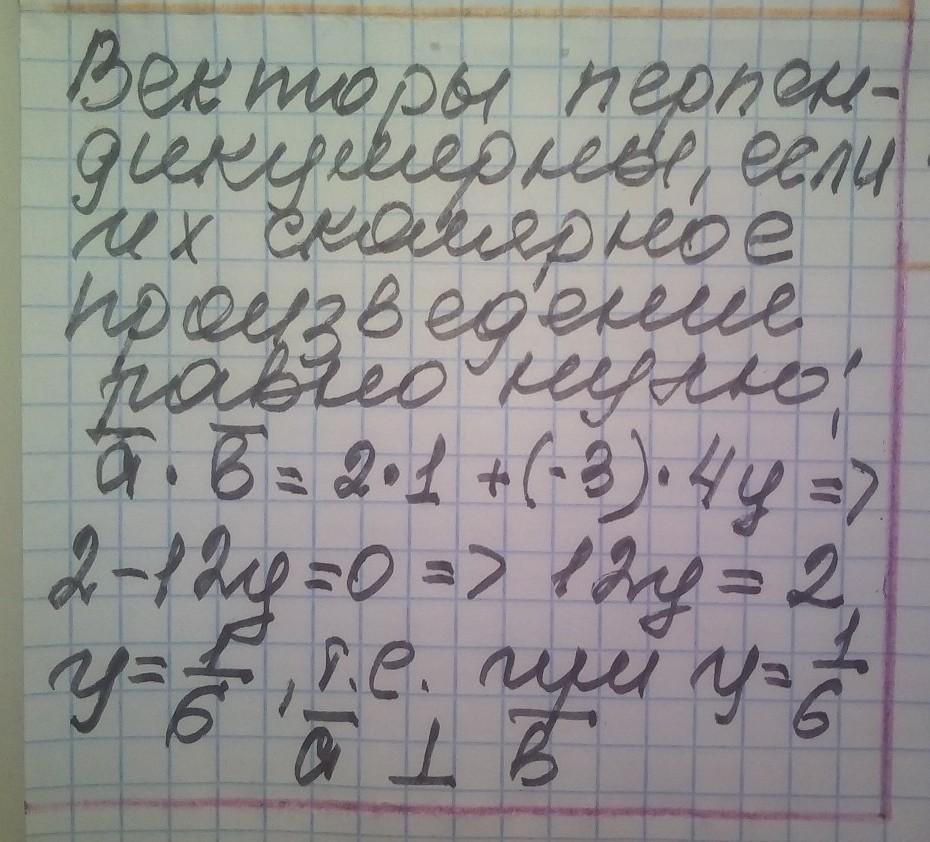 Векторы перпен-
дикулярны, если
их скалярное
произведение
равно нулю!
a̅ · b̅ = 2·1 + (-3)·4y =>
2-12y=0 => 12y = 2,
y = 1/6, т.е. при y = 1/6
a̅ ⊥ b̅